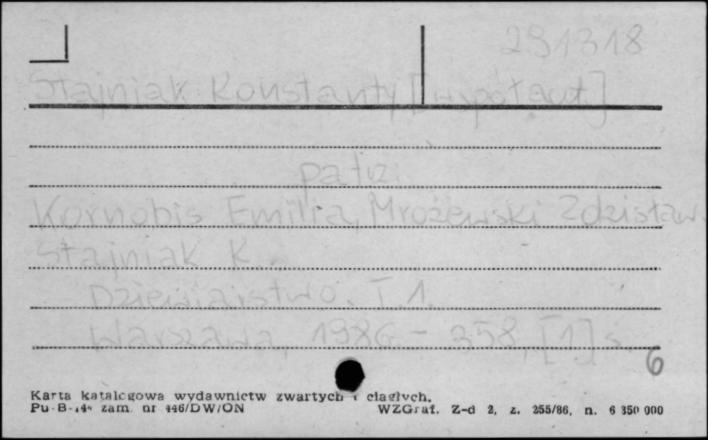 291318
Stajniak Konstanty [współaut.]
patrz
Kornobis Emilia, Mrożewski Zdzisław,
Stajniak K.
Dziewiarstwo. T. 1.
Warszawa, 1986 - 358, [1] s.
6
Karta katalogowa wydawnictw zwartych i ciągłych.
Pu-B-14 zam. nr 446/DW/ON WZGraf. Z-d 2, z. 255/86, n. 6 350 000